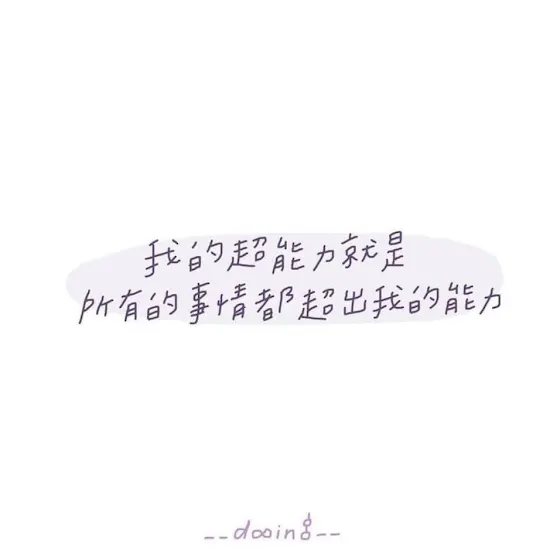 我的超能力就是
所有的事情都超出我的能力
--dooing--